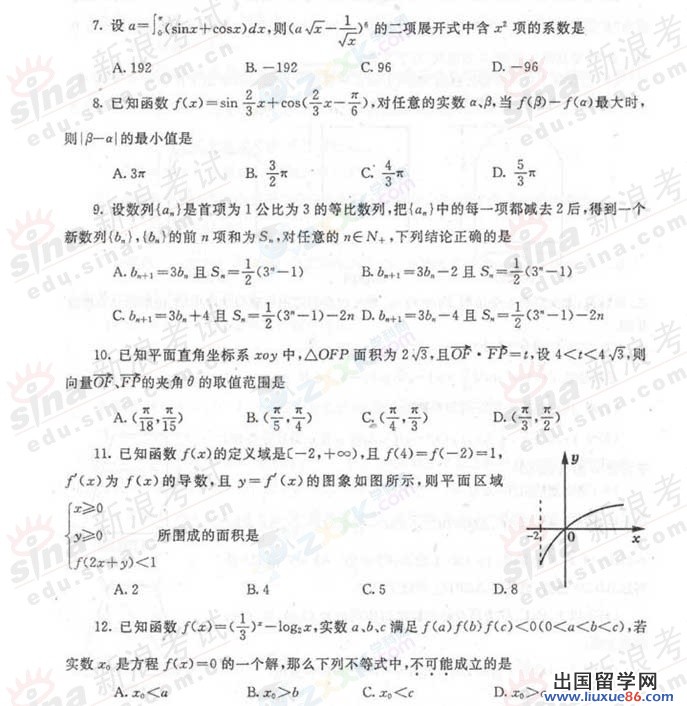 7. 设 a=∫₀^π(sinx+cosx)dx,则(a√x-1/√x)⁶ 的二项展开式中含 x² 项的系数是
A. 192 B. -192 C. 96 D. -96
8. 已知函数 f(x)=sin 2/3 x+cos(2/3 x-π/6),对任意的实数 α、β,当 f(β)-f(α)最大时,
则|β-α|的最小值是
A. 3π B. 3/2 π C. 4/3 π D. 5/3 π
9. 设数列{aₙ}是首项为 1 公比为 3 的等比数列,把{aₙ}中的每一项都减去 2 后,得到一个
新数列{bₙ},{bₙ}的前 n 项和为 Sₙ,对任意的 n∈N₊,下列结论正确的是
A. bₙ₊₁=3bₙ 且 Sₙ=1/2(3ⁿ-1) B. bₙ₊₁=3bₙ-2 且 Sₙ=1/2(3ⁿ-1)
C. bₙ₊₁=3bₙ+4 且 Sₙ=1/2(3ⁿ-1)-2n D. bₙ₊₁=3bₙ-4 且 Sₙ=1/2(3ⁿ-1)-2n
10. 已知平面直角坐标系 xoy 中,△OFP 面积为 2√3,且OF·FP=t,设 4<t<4√3,则
向量OF、FP的夹角 θ 的取值范围是
A. (π/18,π/15) B. (π/5,π/4) C. (π/4,π/3) D. (π/3,π/2)
11. 已知函数 f(x)的定义域是[-2,+∞),且 f(4)=f(-2)=1,
f′(x)为 f(x)的导数,且 y=f′(x)的图象如图所示,则平面区域
{x≥0
y≥0 所围成的面积是
f(2x+y)<1
A. 2 B. 4 C. 5 D. 8
y
-2 O x
12. 已知函数 f(x)=(1/3)ˣ-log₂x,实数 a、b、c 满足 f(a)f(b)f(c)<0(0<a<b<c),若
实数 x₀ 是方程 f(x)=0 的一个解,那么下列不等式中,不可能成立的是
A. x₀<a B. x₀>b C. x₀<c D. x₀>c
出国留学网
www.liuxue86.com
sina 新浪考试
edu.sina.com